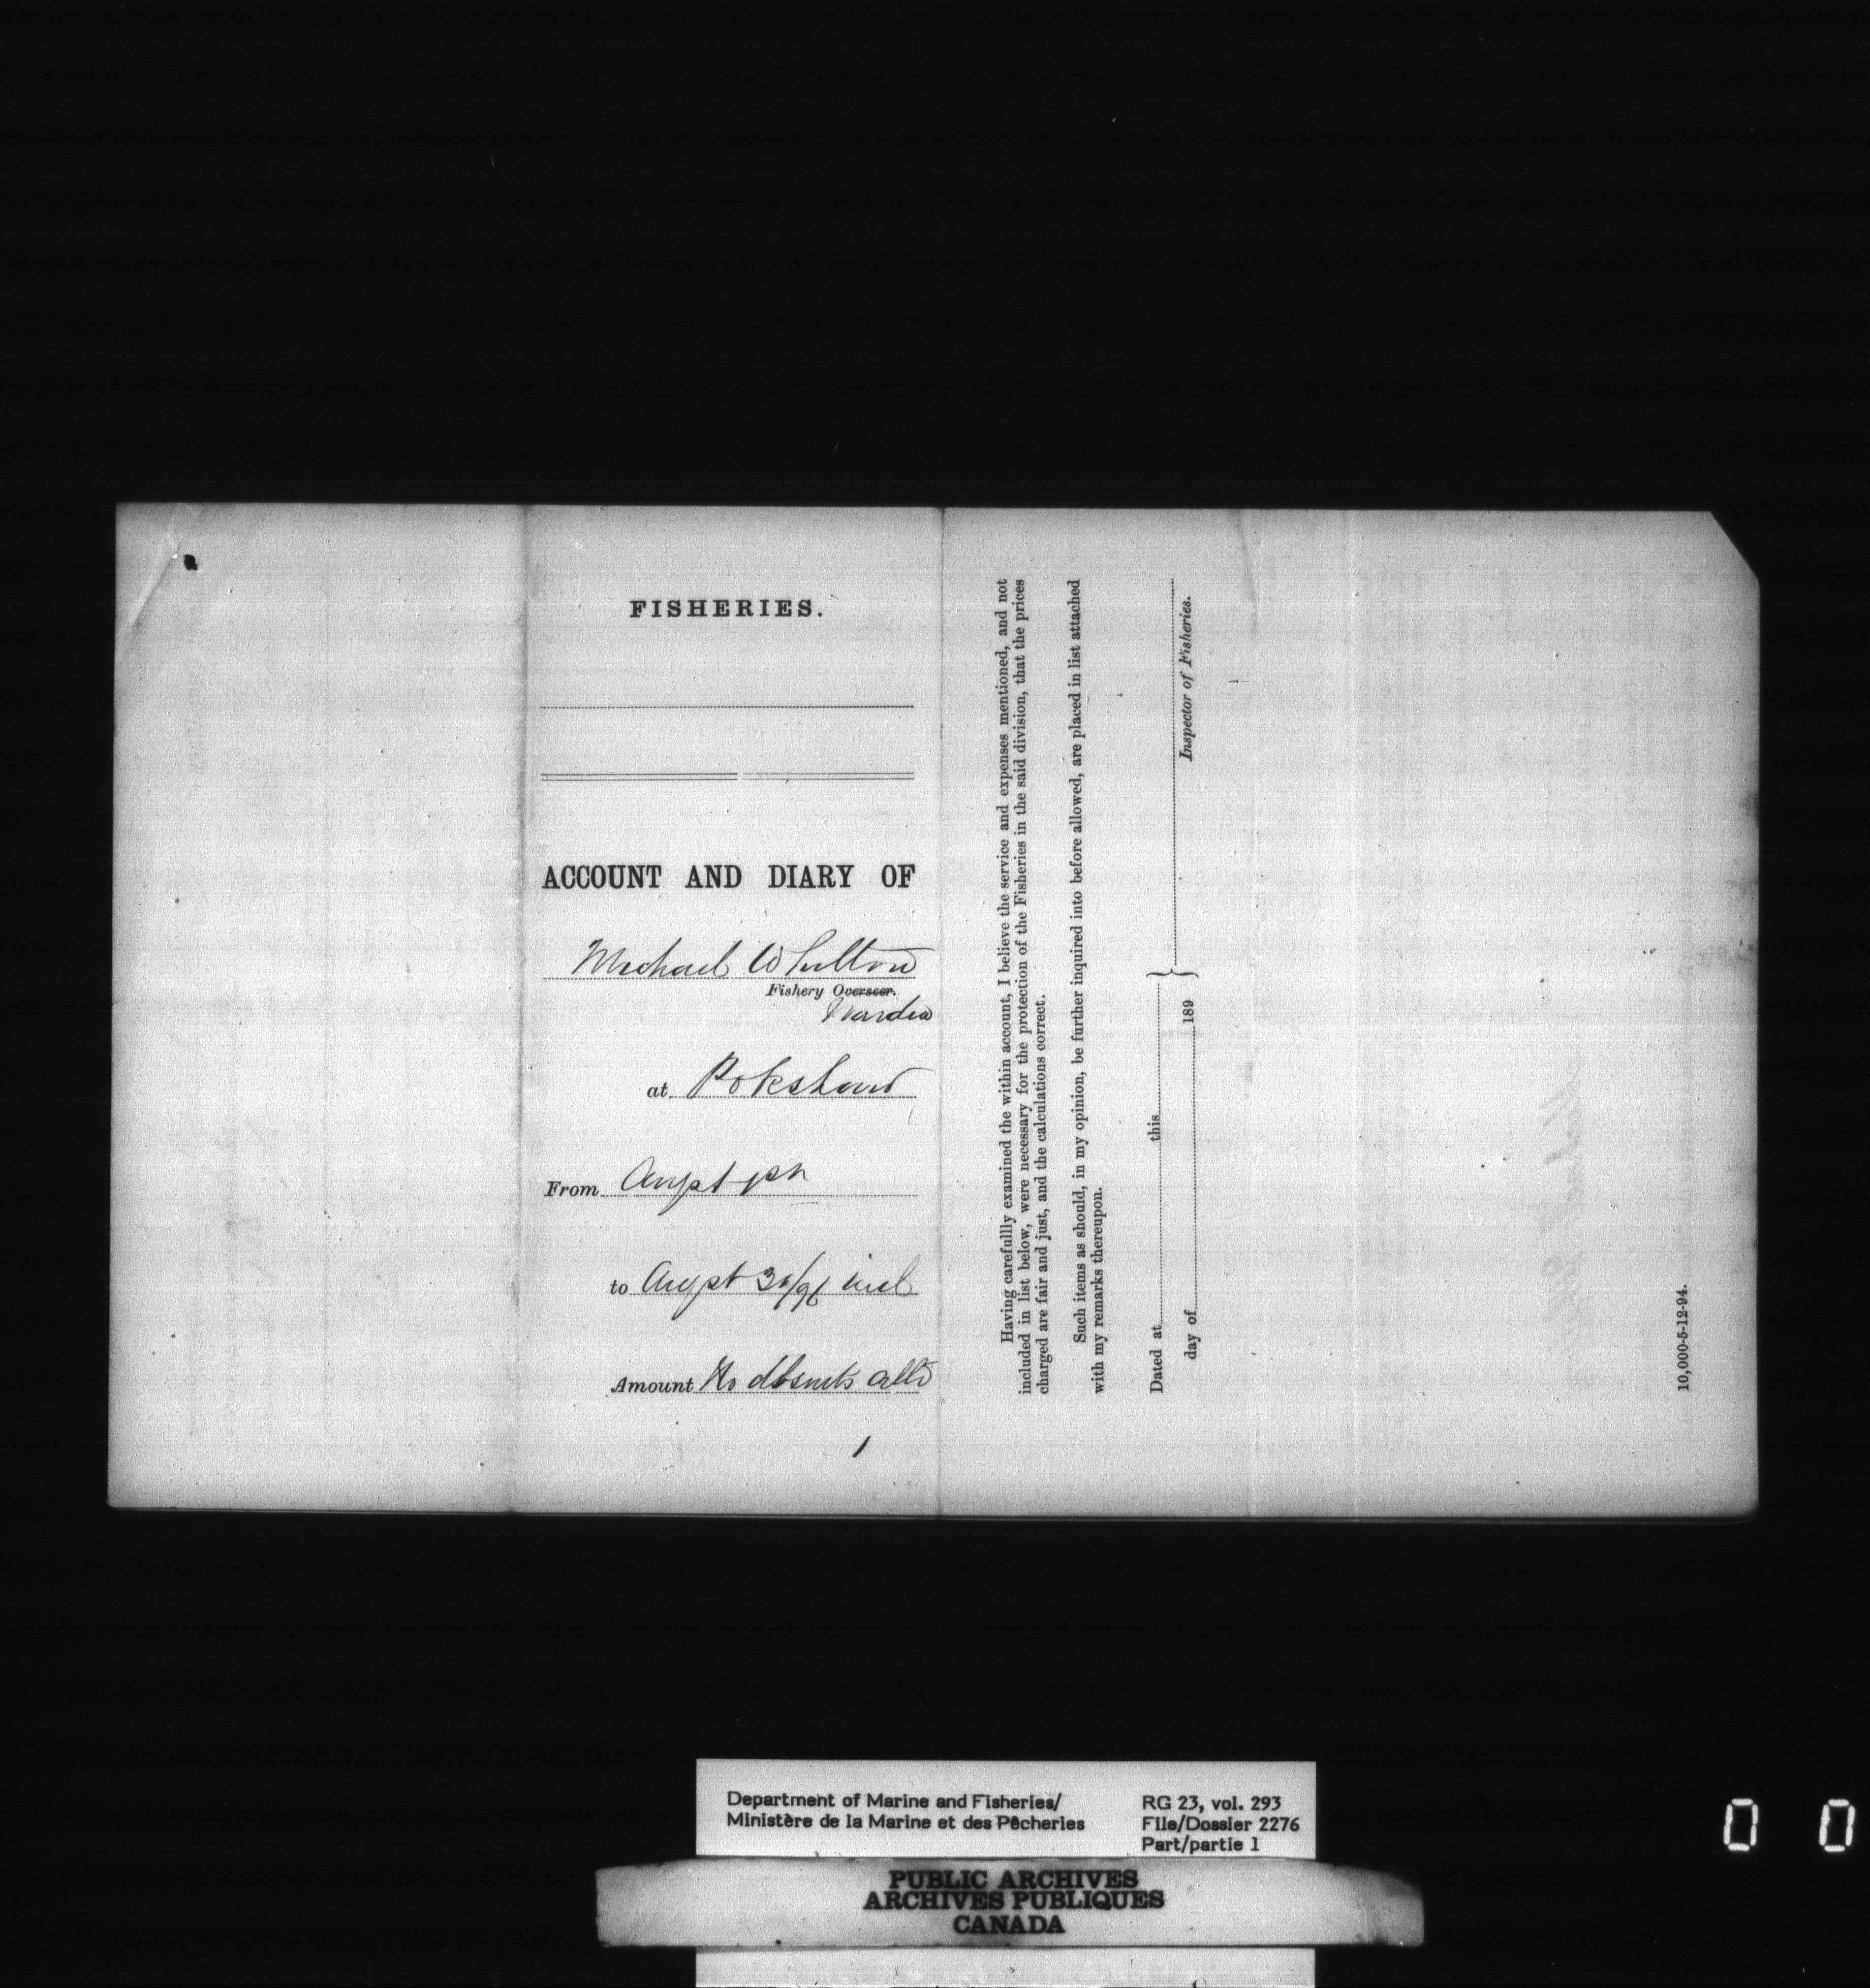 FISHERIES.
ACCOUNT AND DIARY OF
Michael Whelton
Fishery Overseer.
Warden
at Pokshaw
From Augst 1st
to Augst 30/96 incl
Amount No dbsmts alld
1
Having carefullly examined the within account, I believe the service and expenses mentioned, and not
included in list below, were necessary for the protection of the Fisheries in the said division, that the prices
charged are fair and just, and the calculations correct.
Such items as should, in my opinion, be further inquired into before allowed, are placed in list attached
with my remarks thereupon.
Dated at this
day of 189 }
Inspector of Fisheries.
10,000-5-12-94.
Department of Marine and Fisheries/
Ministère de la Marine et des Pêcheries
RG 23, vol. 293
File/Dossier 2276
Part/partie 1
PUBLIC ARCHIVES
ARCHIVES PUBLIQUES
CANADA
0 0